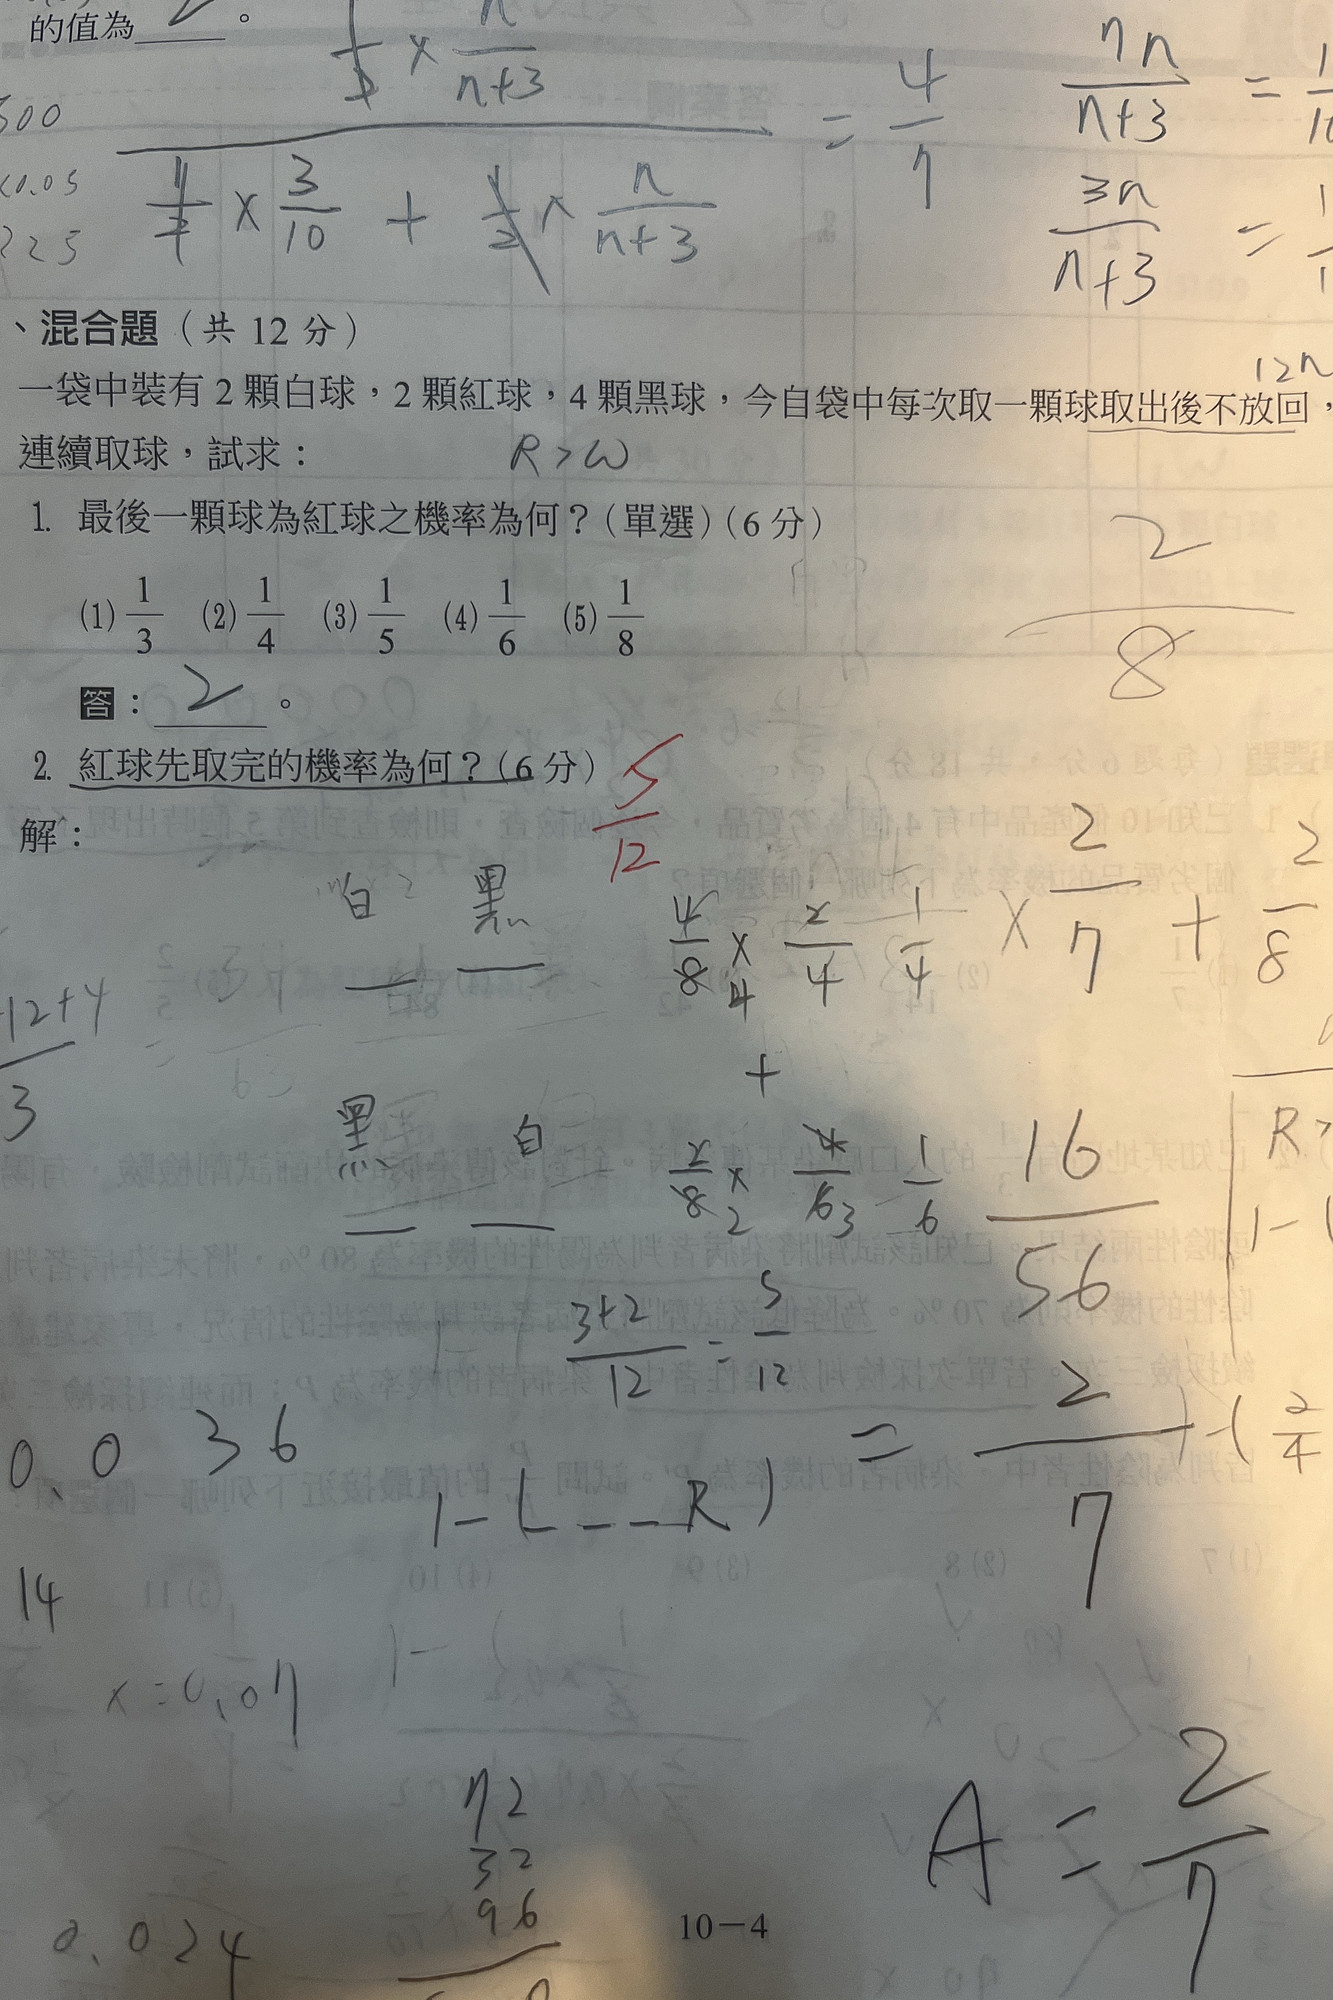 的值為 2 。
1/2 × n/n+3
1/2 × 3/10 + 1/2 × n/n+3
= 4/7
7n/n+3 =
3n/n+3 =
12n
、混合題（共 12 分）
一袋中裝有 2 顆白球，2 顆紅球，4 顆黑球，今自袋中每次取一顆球取出後不放回，
連續取球，試求：
R > W
1. 最後一顆球為紅球之機率為何？（單選）（6 分）
(1) 1/3 (2) 1/4 (3) 1/5 (4) 1/6 (5) 1/8
2/8
答：2 。
2. 紅球先取完的機率為何？（6 分）
5/12
解：
白 黑
4/8 × 2/4 1/4 × 2/7 + 2/8
+
12+4/3
黑 白
2/8 × 4/6 1/6
16/56
3+2/12 = 5/12
= 2/7
2/4
0.036
1-(_ _ _ R)
14
x=0.07
72
32
96
A = 2/7
0.024
10－4